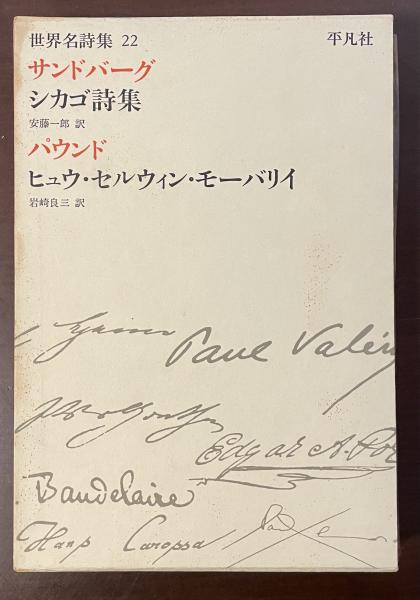 世界名詩集 22
平凡社
サンドバーグ
シカゴ詩集
安藤一郎 訳
パウンド
ヒュウ・セルウィン・モーバリイ
岩崎良三 訳
Paul Valéry
Edgar A. Poe
Baudelaire
Hans Carossa